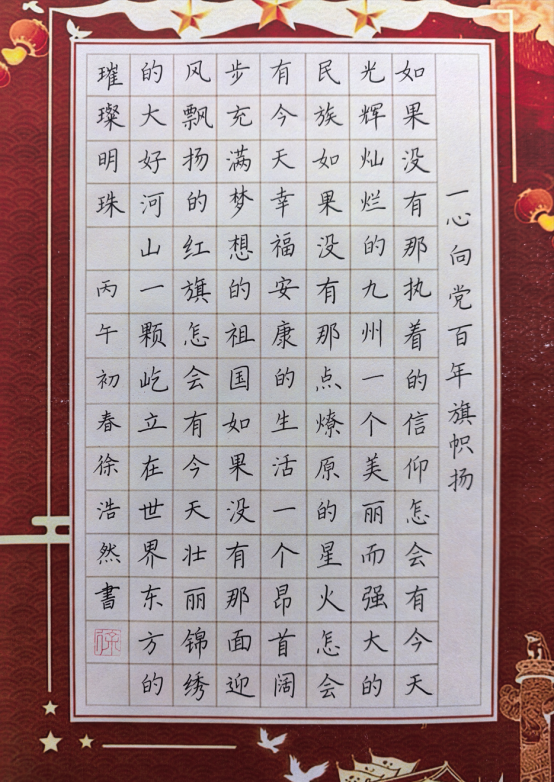 一心向党百年旗帜扬
如果没有那执着的信仰怎会有今天
光辉灿烂的九州一个美丽而强大的
民族如果没有那点燎原的星火怎会
有今天幸福安康的生活一个昂首阔
步充满梦想的祖国如果没有那面迎
风飘扬的红旗怎会有今天壮丽锦绣
的大好河山一颗屹立在世界东方的
璀璨明珠 丙午初春徐浩然書
徐